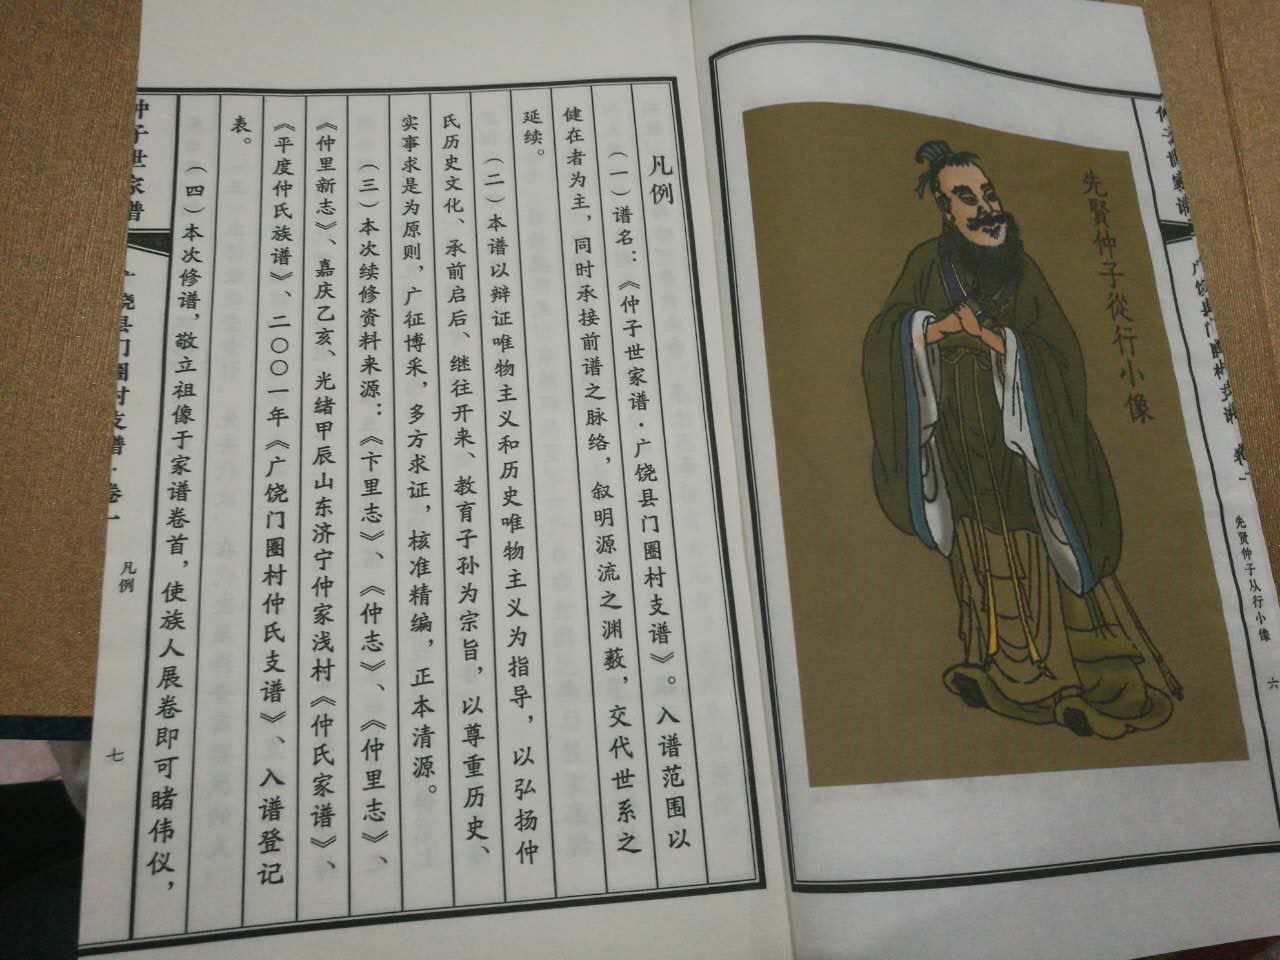 先賢仲子從行小像
先贤仲子从行小像
六
凡例
（一）谱名：《仲子世家谱·广饶县门圈村支谱》。入谱范围以
健在者为主，同时承接前谱之脉络，叙明源流之渊薮，交代世系之
延续。
（二）本谱以辩证唯物主义和历史唯物主义为指导，以弘扬仲
氏历史文化、承前启后、继往开来、教育子孙为宗旨，以尊重历史、
实事求是为原则，广征博采，多方求证，核准精编，正本清源。
（三）本次续修资料来源：《卞里志》、《仲志》、《仲里志》、
《仲里新志》、嘉庆乙亥、光绪甲辰山东济宁仲家浅村《仲氏家谱》、
《平度仲氏族谱》、二〇〇一年《广饶门圈村仲氏支谱》、入谱登记
表。
（四）本次修谱，敬立祖像于家谱卷首，使族人展卷即可睹伟仪，
仲子世家谱
饶县门圈村支谱·卷一
凡例
七